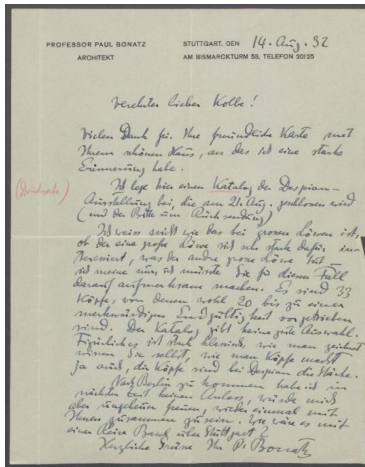 PROFESSOR PAUL BONATZ
ARCHITEKT
STUTTGART, DEN 14. Aug. 32
AM BISMARCKTURM 53, TELEFON 20125
Verehrter lieber Kolbe!
Vielen Dank für Ihre freundliche Karte mit
Ihrem schönen Haus, an das ich eine starke
Erinnerung habe.
Ich lege hier einen Katalog der Despiau-
Ausstellung bei, die am 21. Aug. geschlossen wird
(und der Bitte um Rücksendung)
Ich weiss nicht wie das bei grossen Löwen ist,
ob der eine grosse Löwe sich sehr stark dafür in-
teressiert, was der andre grosse Löwe tut –
ich meine nur ich müsste Sie für diesen Fall
darauf aufmerksam machen. Es sind 33
Köpfe, von denen wohl 20 bis zu einer
merkwürdigen Endgültigkeit vorgetrieben
sind. Der Katalog gibt keine gute Auswahl.
Figürliches ist
wissen Sie selbst, wie man Köpfe macht
ja auch, die Köpfe sind bei Despiau die Stärke.
Nach Berlin zu kommen habe ich in
nächster Zeit keinen Anlass, würde mich
aber ungeheuer freuen, wieder einmal mit
Ihnen zusammen zu sein. Wie wäre es mit
einer Reise über Stuttgart?
Herzliche Grüsse Ihr P. Bonatz